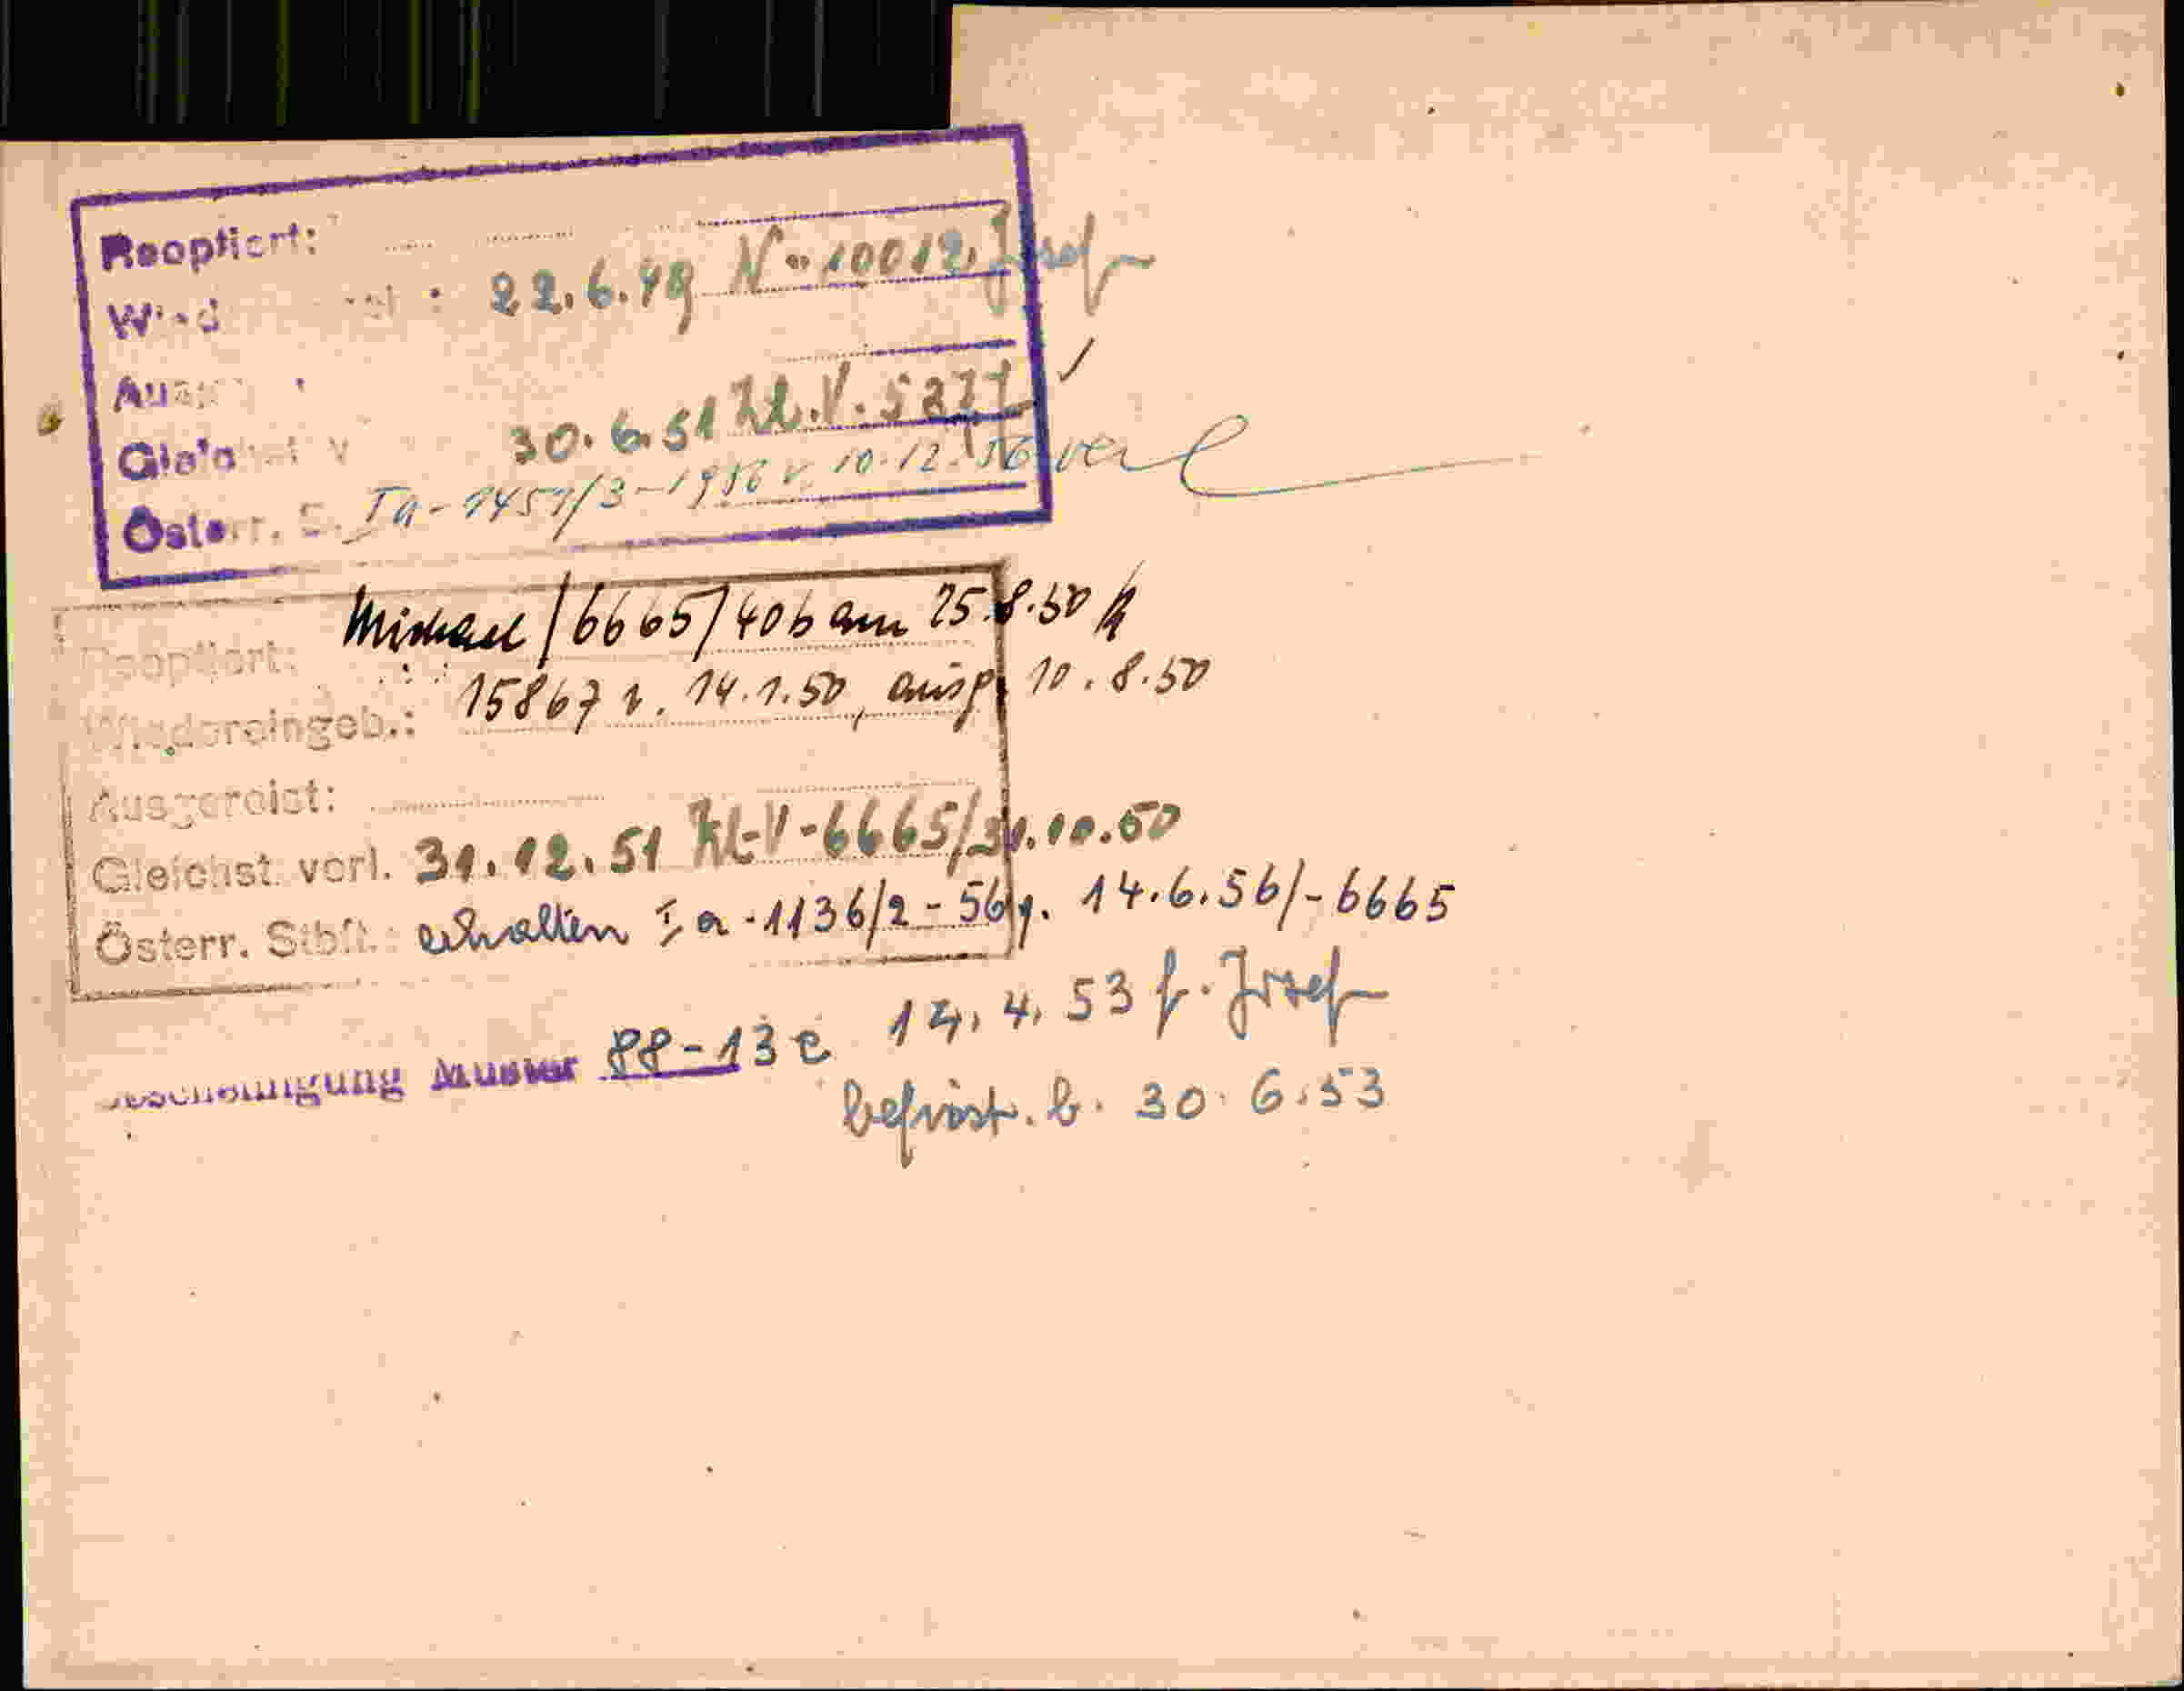 Reoptiert:
22.6.49 N-10012, Josef
30.6.51 Zl.V.5277 ✓
Österr. S. Ia-1457/3-1956 v. 10.12.56
Michael /6665/40b am 25.8.50
Reoptiert:
Wiedereingeb.: 15867 v. 14.1.50, ausg. 10.8.50
Ausgereist:
Gleichst. verl. 31.12.51 Zl-V-6665/31.10.50
Österr. Stbft.: erhalten Ia-1136/2-56 v. 14.6.56/-6665
Bescheinigung Muster 88-13c 14.4.53 f. Josef
befrist. b. 30.6.53